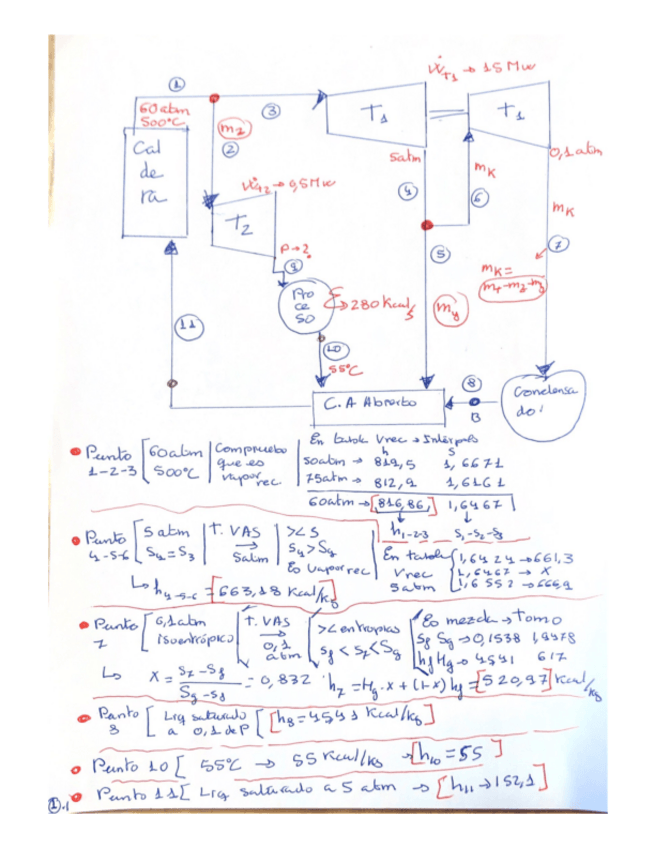 1
ẆT1 → 15 Mw
60 atm
500°C
3
T1
T1
Cal
de
ra
m2
2
5 atm
0,1 atm
ẆT2 → 0,5 Mw
4
mK
6
mK
T2
P→2
9
5
7
Pro
ce
so
280 Kcal/s
my
mK =
11
10
55°C
8
C.A Abierto
B
Condensa
do
Punto
1-2-3
60 atm
500°C
Compruebo
que es
vapor rec.
En tabla Vrec → Interpolo
h s
50 atm → 819,5 1,6671
75 atm → 812,9 1,6161
60 atm → 816,86, 1,6467
h1-2-3 S1-S2-S3
Punto
4-5-6
5 atm
S4 = S3
T. VAS
→
5 atm
>< S
S4 > Sg
Es vapor rec
En tabla
Vrec
5 atm
1,6424 → 661,3
1,6467 → X
1,6552 →
h4-5-6 = 663,18 Kcal/kg
Punto
7
0,1 atm
isoentrópico
T. VAS
→
0,1
atm
>< entropias
Sf < S7 < Sg
Es mezcla → Tomo
Sf Sg → 0,1538 1,9478
hf Hg → 45,41 617
X = S7 - Sf / Sg - Sf = 0,832 h7 = Hg · x + (1-x) hf = 520,97 Kcal/kg
Punto
8
Liq saturado
a 0,1 de P
h8 = 45,41 Kcal/kg
Punto 10 [ 55°C → 55 Kcal/kg → [h10 = 55]
Punto 11 [ Liq saturado a 5 atm → [h11 → 152,1]
1.1